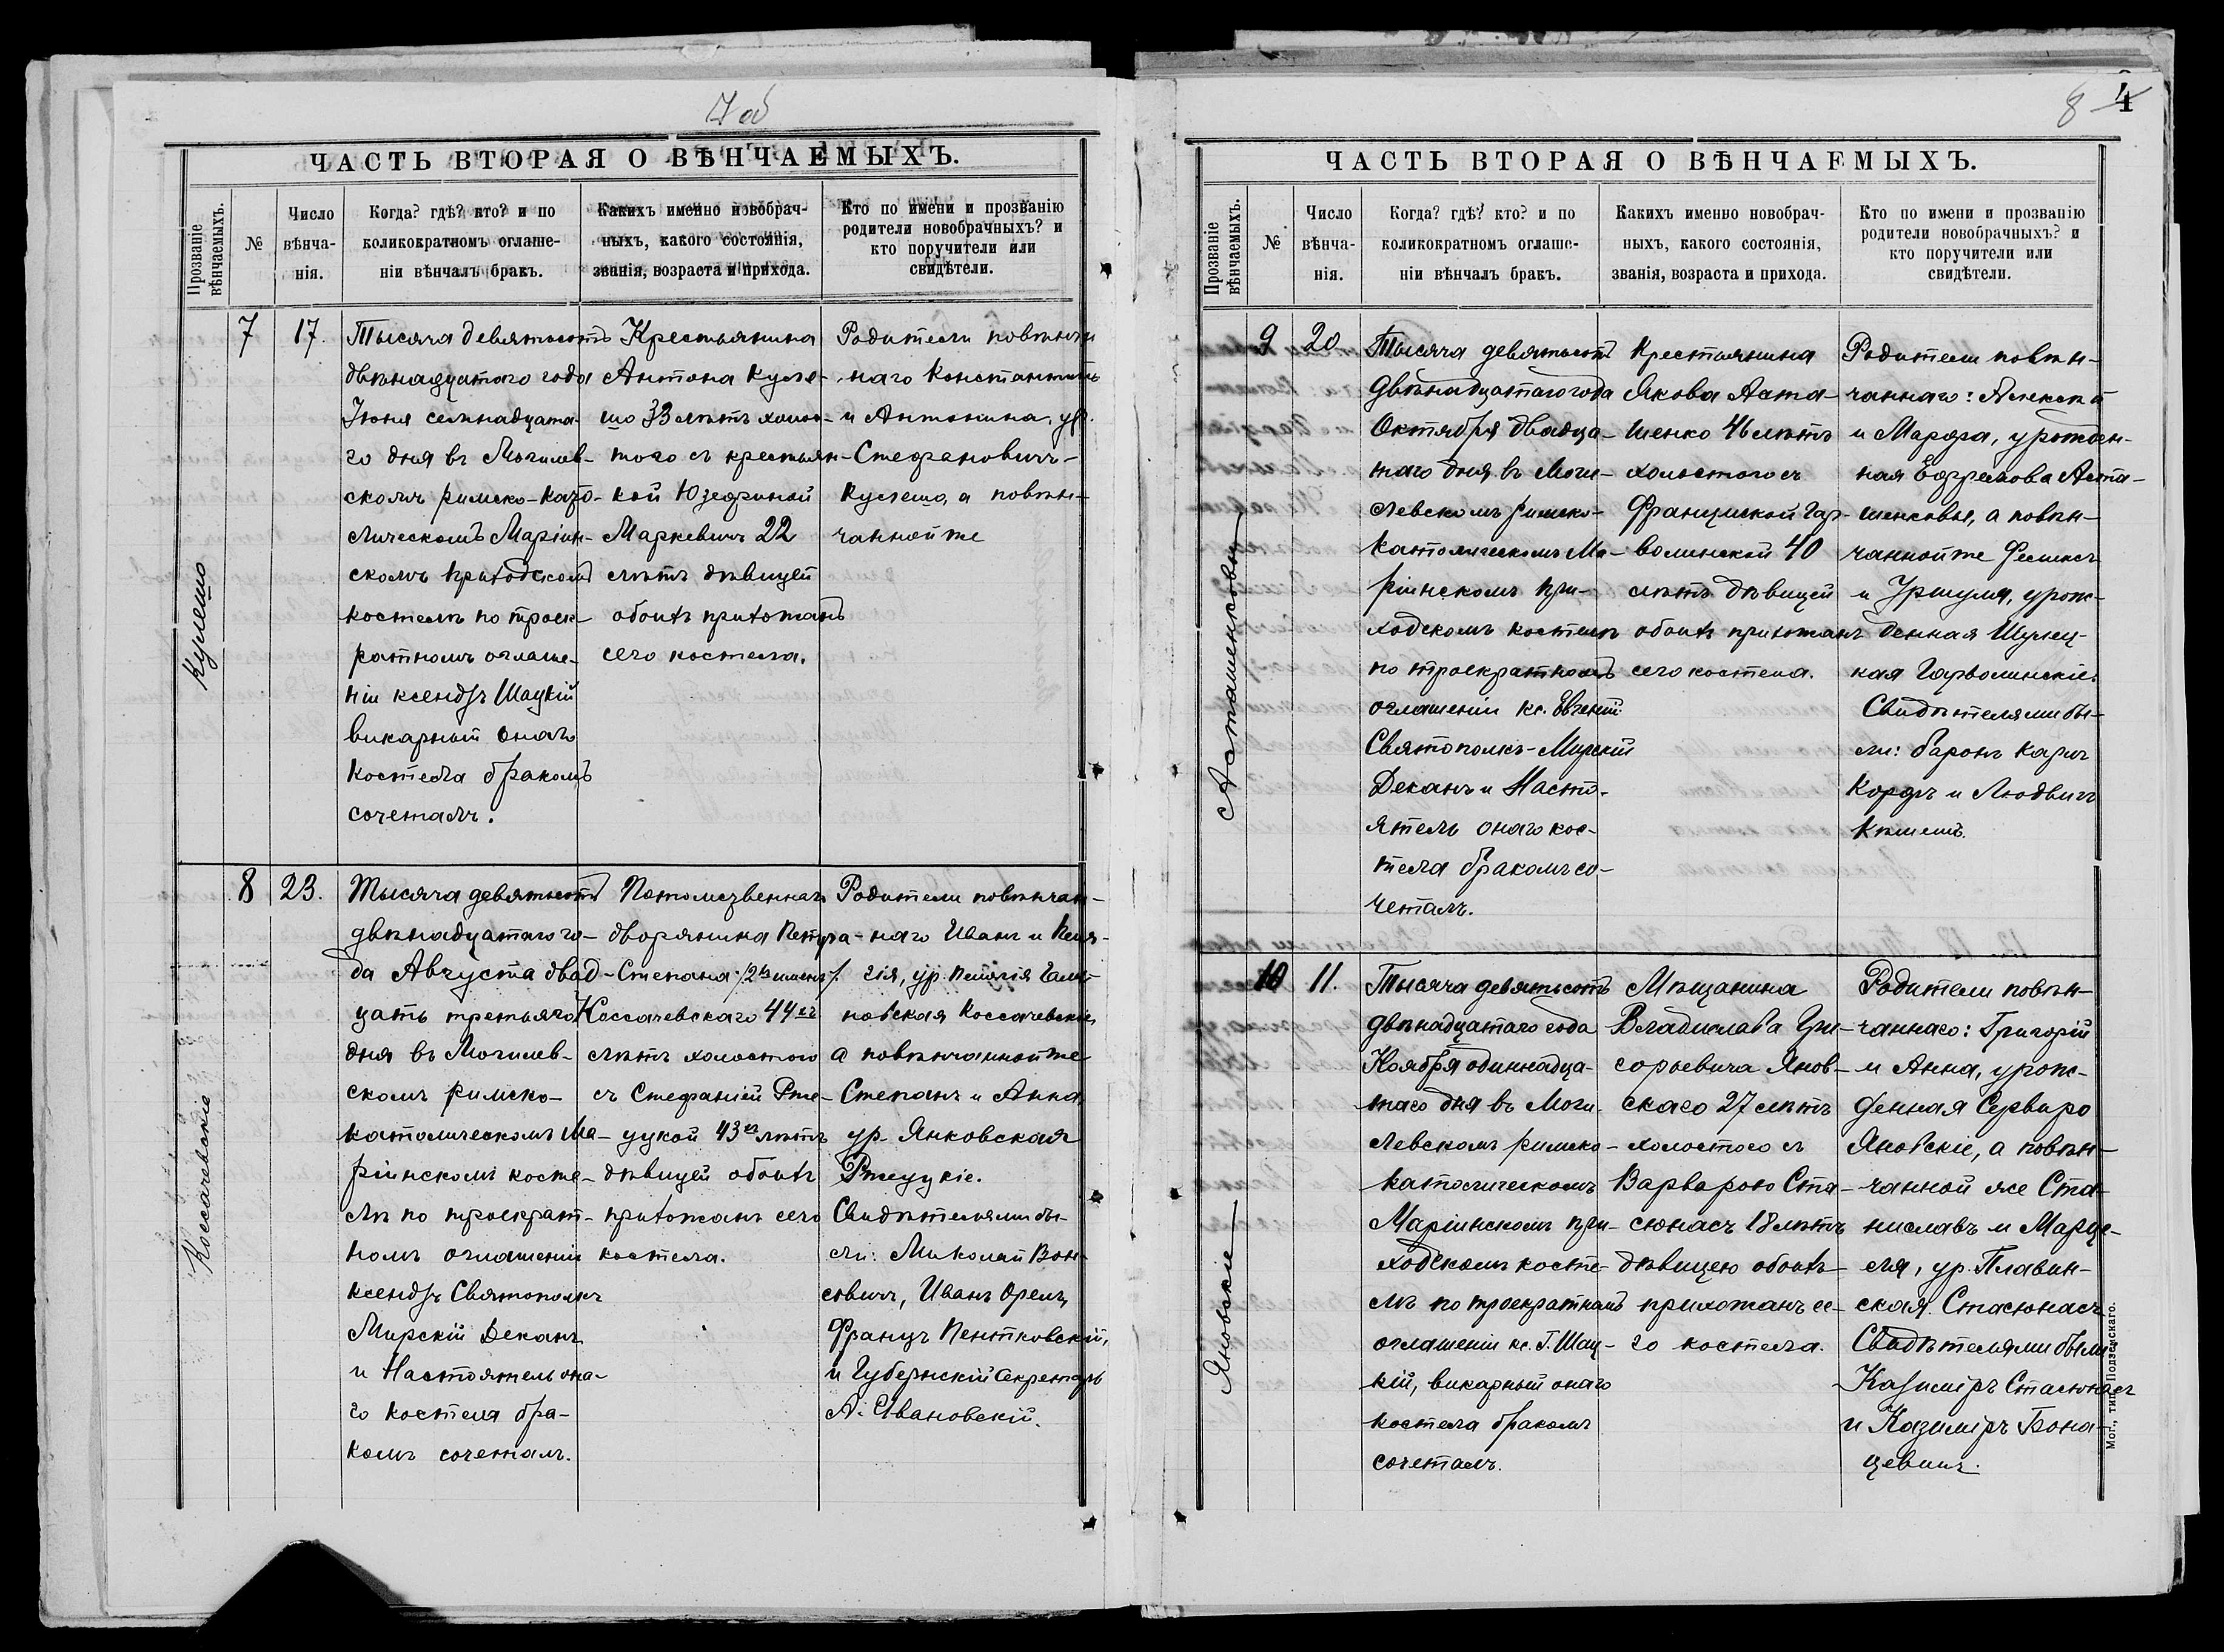 7 об
ЧАСТЬ ВТОРАЯ О ВѢНЧАЕМЫХЪ.
Прозваніе
вѣнчаемыхъ.
№
Число
вѣнча-
нія.
Когда? гдѣ? кто? и по
коликократномъ оглаше-
ніи вѣнчалъ бракъ.
Какихъ именно новобрач-
ныхъ, какого состоянія,
званія, возраста и прихода.
Кто по имени и прозванію
родители новобрачныхъ? и
кто поручители или
свидѣтели.
Кулешо
7
17.
Тысяча девятьсотъ
двѣнадцатаго года
Іюня семнадцата-
го дня въ Могилев-
скомъ римско-като-
лическомъ Маріин-
скомъ приходскомъ
костелѣ по троек-
ратномъ оглаше-
ніи ксендзъ Шацкій
викарный онаго
костела бракомъ
сочеталъ.
Крестьянина
Антона Куле-
шо 33 лѣтъ холос-
того съ крестьян-
кой Юзефиной
Маркевичъ 22
лѣтъ дѣвицей
обоихъ прихожанъ
сего костела.
Родители повѣнчан
наго Константинъ
и Антонина, ур.
Стефановичъ-
Кулешо, а повѣн-
чанной же
Коссачевскіе
8
23.
Тысяча девятьсотъ
двѣнадцатаго го-
да Августа двад-
цать третьяго
дня въ Могилев-
скомъ римско-
католическомъ Ма-
ріинскомъ косте-
лѣ по троекрат-
номъ оглашеніи
ксендзъ Святополкъ
Мирскій Деканъ
и Настоятель она-
го костела бра-
комъ сочеталъ.
Потомственнаго
дворянина Петра-
Степана /2хъ именъ/
Коссачевскаго 44хъ
лѣтъ холостого
съ Стефаніей Рже-
цукой 43хъ лѣтъ
дѣвицей обоихъ
прихожанъ сего
костела.
Родители повѣнчан-
наго Иванъ и Пела-
гія, ур.
новская Коссачевскіе,
а повѣнчанной же
Степанъ и Анна,
ур. Янковская
Ржецукіе.
Свидѣтелями бы-
ли: Миколай Вон-
совичъ, Иванъ Орелъ,
Францъ Пентковскій,
и Губернскій Секретарь
А. Ивановскій.
8 4
ЧАСТЬ ВТОРАЯ О ВѢНЧАЕМЫХЪ.
Прозваніе
вѣнчаемыхъ.
№
Число
вѣнча-
нія.
Когда? гдѣ? кто? и по
коликократномъ оглаше-
ніи вѣнчалъ бракъ.
Какихъ именно новобрач-
ныхъ, какого состоянія,
званія, возраста и прихода.
Кто по имени и прозванію
родители новобрачныхъ? и
кто поручители или
свидѣтели.
Асташенковы
9
20
Тысяча девятьсотъ
двѣнадцатаго года
Октября двадца-
таго дня въ Моги-
левскомъ римско-
католическомъ Ма-
ріинскомъ при-
ходскомъ костелѣ
по троекратномъ
оглашеніи кс. Евгеній
Святополкъ-Мирскій
Деканъ и Насто-
ятель онаго кос-
тела бракомъ со-
четалъ.
Крестьянина
Якова Аста-
шенко 46 лѣтъ
холостого съ
Францишкой Гар-
волинской 40
лѣтъ дѣвицей
обоихъ прихожанъ
сего костела.
Родители повѣн-
чаннаго: Алексѣй
и Марфа, урожден-
ная Ефремова Аста-
шенковы, а повѣн-
чанной же Феликсъ
и Уршуля, урож-
денная Шулец-
кая Гарволинскіе.
Свидѣтелями бы-
ли: баронъ Карлъ
Корфъ и Людвигъ
Яновскіе
10
11.
Тысяча девятьсотъ
двѣнадцатаго года
Ноября одиннадца-
таго дня въ Моги-
левскомъ римско-
католическомъ
Маріинскомъ при-
ходскомъ косте-
лѣ по троекратномъ
оглашеніи кс. Г. Шац-
кій, викарный онаго
костела бракомъ
сочеталъ.
Мѣщанина
Владислава Гри-
горьевича Янов-
скаго 27 лѣтъ
холостого съ
Варварою Ста-
сюнасъ 18 лѣтъ
дѣвицею обоихъ
прихожанъ се-
го костела.
Родители повѣн-
чаннаго: Григорій
и Анна, урож-
денная Сервиро
Яновскіе, а повѣн-
чанной же Ста-
ниславъ и Марце-
ля, ур. Плавин-
ская Стасюнасъ.
Свидѣтелями были
Казиміръ Стасюнасъ
и Казиміръ Бона-
цевичъ.
Мог., тип. Подземскаго.